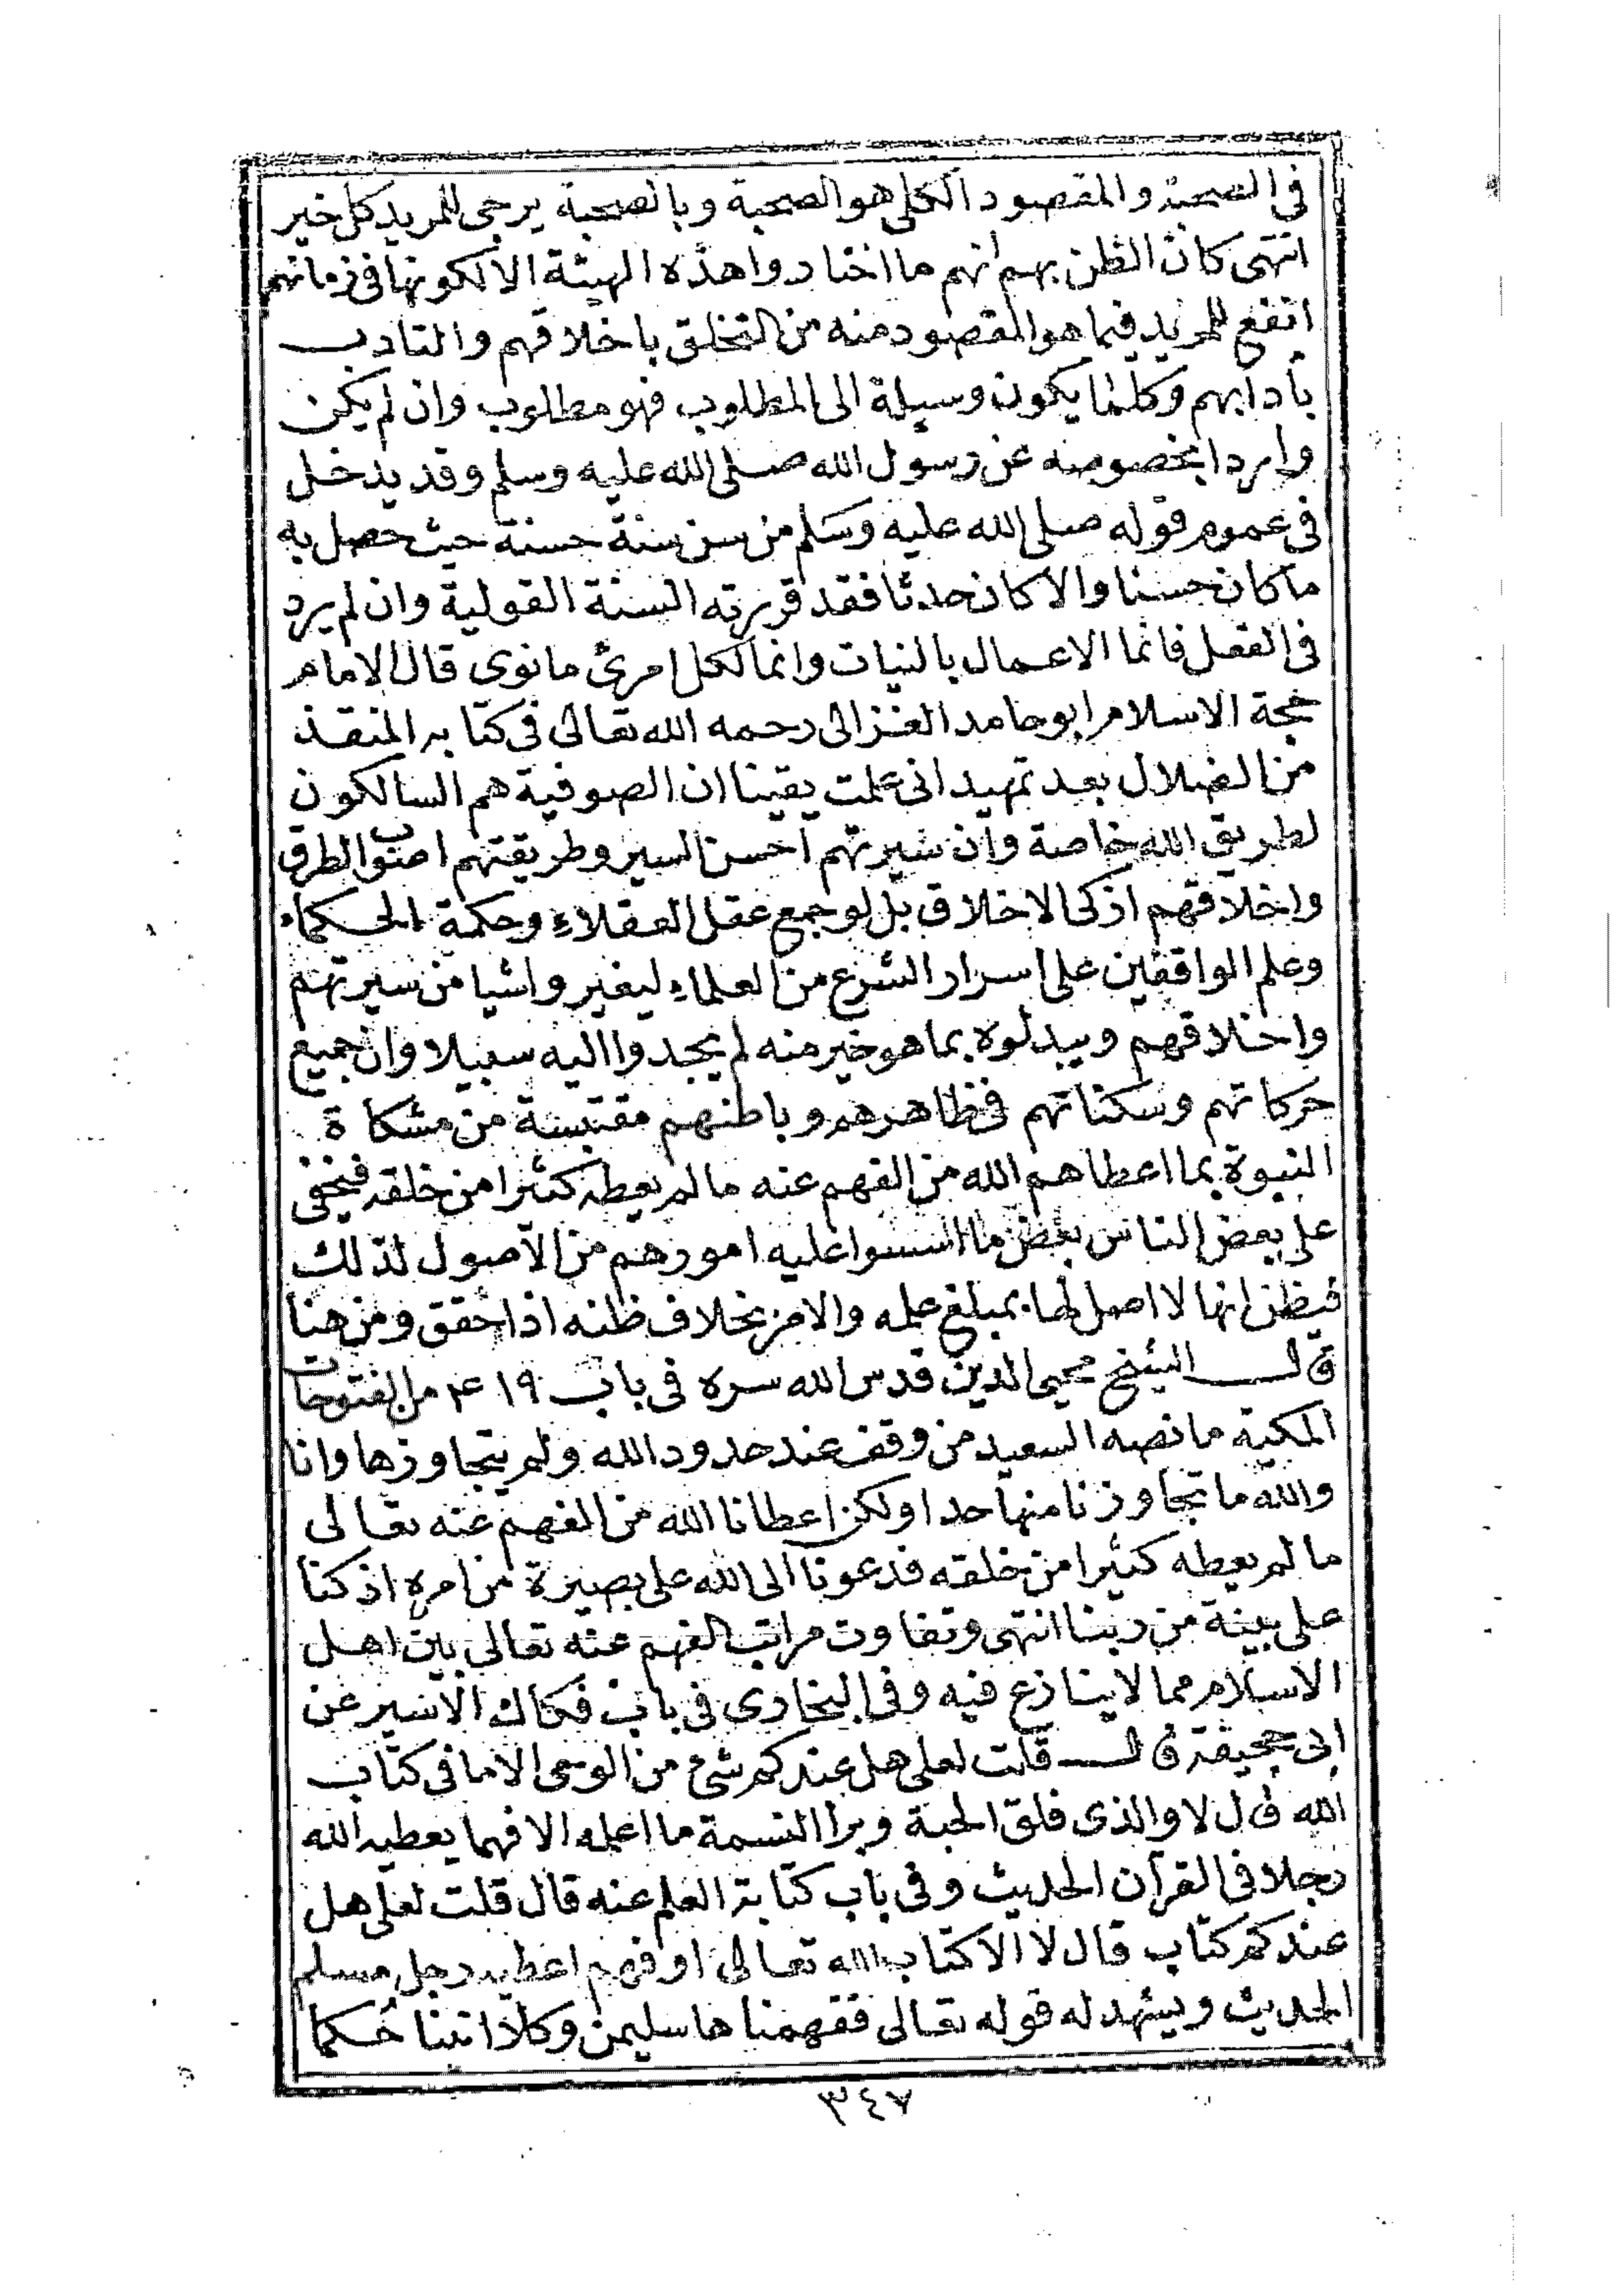 في الصحبة والمقصود الكلي هو الصحبة وبالصحبة يرجى للمريد كل خير
انتهى كان الظن بهم انهم ما اختاروا هذه الهيئة الا لكونها في زمانهم
انفع للمريد فيما هو المقصود منه من التخلق باخلاقهم والتادب
بآدابهم وكلما يكون وسيلة الى المطلوب فهو مطلوب وان لم يكن
واردا بخصوصه عن رسول الله صلى الله عليه وسلم وقد يدخل
في عموم قوله صلى الله عليه وسلم من سن سنة حسنة حيث حصل به
ما كان حسنا والا كان حدثا فقد قررته السنة القولية وان لم يرد
في الفعل فانما الاعمال بالنيات وانما لكل امرئ ما نوى قال الامام
حجة الاسلام ابو حامد الغزالى رحمه الله تعالى في كتابه المنقذ
من الضلال بعد تمهيد انى علمت يقينا ان الصوفية هم السالكون
لطريق الله خاصة وان سيرتهم احسن السير وطريقتهم اصوب الطرق
واخلاقهم ازكى الاخلاق بل لو جمع عقل العقلاء وحكمة الحكماء
وعلم الواقفين على اسرار الشرع من العلماء ليغيروا شيا من سيرتهم
واخلاقهم ويبدلوه بما هو خير منه لم يجدوا اليه سبيلا وان جميع
حركاتهم وسكناتهم في ظاهرهم وباطنهم مقتبسة من مشكاة
النبوة بما اعطاهم الله من الفهم عنه ما لم يعطه كثيرا من خلقه فيخفى
على بعض الناس بعض ما اسسوا عليه امورهم من الاصول لذلك
فيظن انها لا اصل لها بمبلغ علمه والامر بخلاف ظنه اذا حقق ومن هنا
قال الشيخ محيى الدين قدس الله سره في باب ٤١٩ من الفتوحات
المكية ما نصه السعيد من وقف عند حدود الله ولم يتجاوزها وانا
والله ما تجاوزنا منها حدا ولكن اعطانا الله من الفهم عنه تعالى
ما لم يعطه كثيرا من خلقه فدعونا الى الله على بصيرة من امره اذ كنا
على بينة من ربنا انتهى وتفاوت مراتب الفهم عنه تعالى بين اهل
الاسلام مما لا ينازع فيه وفي البخارى في باب فكاك الاسير عن
ابى جحيفة قال قلت لعلي هل عندكم شئ من الوحى الا ما في كتاب
الله قال لا والذى فلق الحبة وبرا النسمة ما اعلمه الا فهما يعطيه الله
رجلا في القرآن الحديث وفي باب كتابة العلم عنه قال قلت لعلي هل
عندكم كتاب قال لا الا كتاب الله تعالى او فهم اعطيه رجل مسلم
الحديث ويشهد له قوله تعالى ففهمناها سليمن وكلا اتينا حُكما
٣٤٧